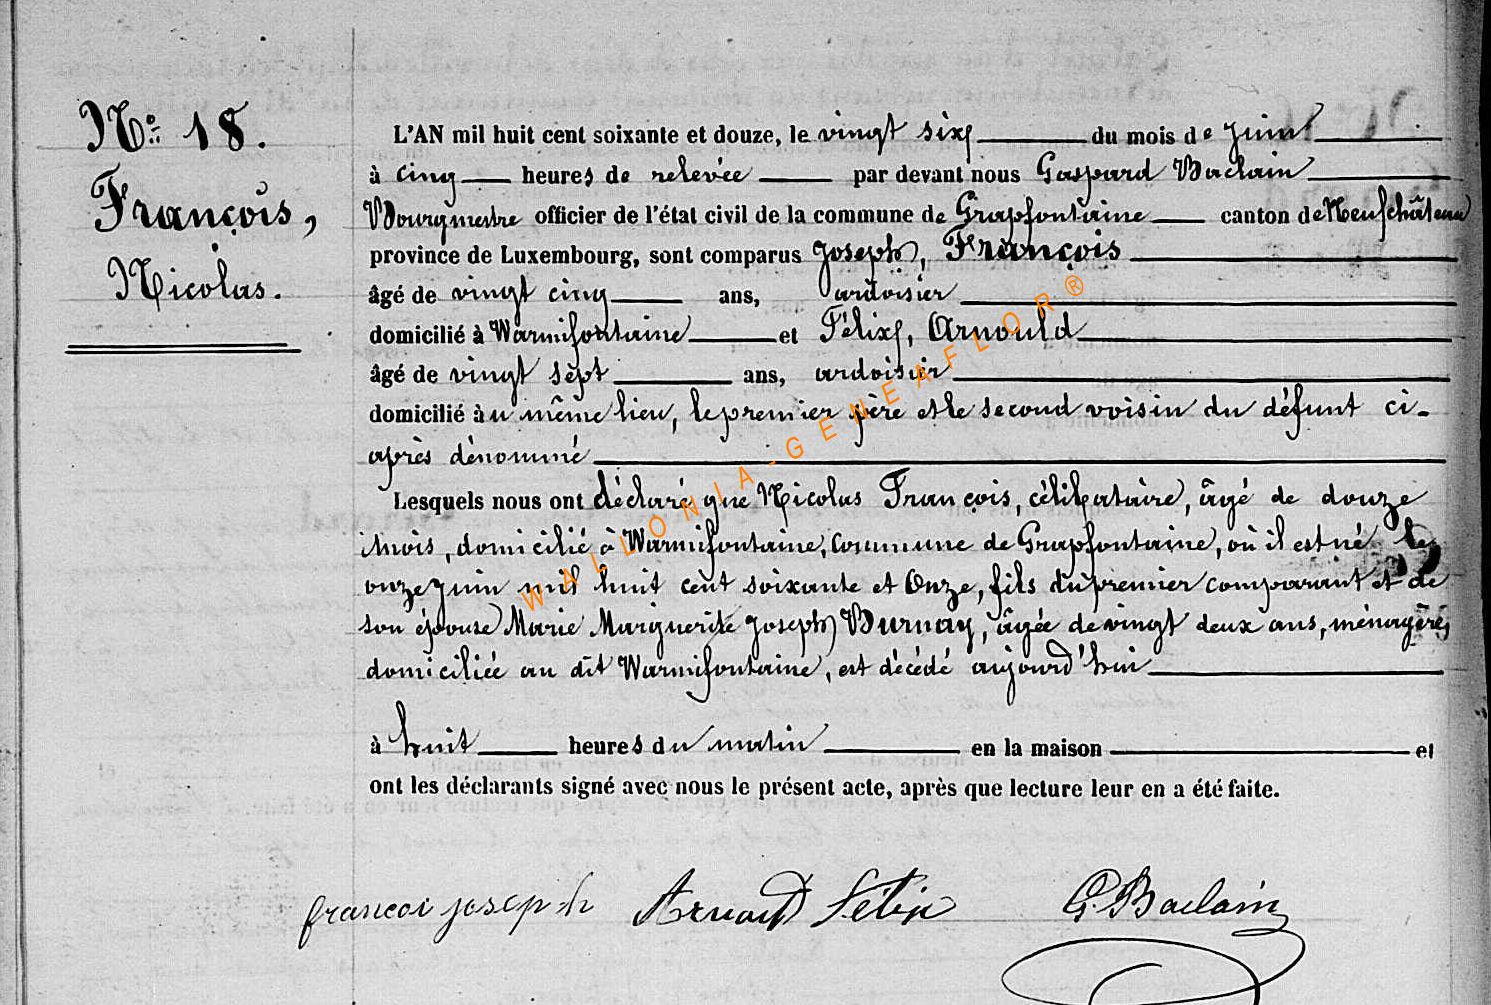 N°: 18.
François,
Nicolas.
L'AN mil huit cent soixante et douze, le vingt six du mois de juin
à cinq heures de relevée par devant nous Gaspard Baclain
Bourgmestre officier de l'état civil de la commune de Grapfontaine canton de Neufchâteau
province de Luxembourg, sont comparus Joseph, François
âgé de vingt cinq ans, ardoisier
domicilié à Warmifontaine et Félix, Arnould
âgé de vingt sept ans, ardoisier
domicilié au même lieu, le premier père et le second voisin du défunt ci-
après dénommé
Lesquels nous ont déclaré que Nicolas François, célibataire, âgé de douze
mois, domicilié à Warmifontaine, commune de Grapfontaine, où il est né le
onze juin mil huit cent soixante et onze, fils du premier comparant et de
son épouse Marie Marguerite Joseph Burnay, âgée de vingt deux ans, ménagère,
domiciliée au dit Warmifontaine, est décédé aujourd'hui
à huit heures du matin en la maison et
ont les déclarants signé avec nous le présent acte, après que lecture leur en a été faite.
francoi joseph Arnould Félix G. Baclain
WALLONIA-GENEAFLOR®